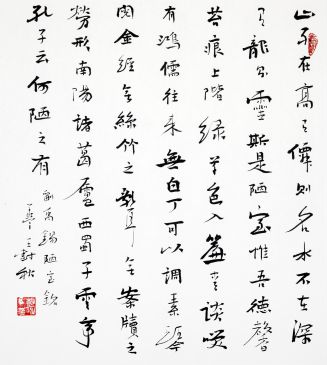 山不在高有僊則名水不在深
有龍則靈斯是陋室惟吾德馨
苔痕上階綠草色入簾青談笑
有鴻儒往來無白丁可以調素琴
閱金經無絲竹之亂耳無案牘之
勞形南陽諸葛廬西蜀子雲亭
孔子云何陋之有
劉禹錫陋室銘